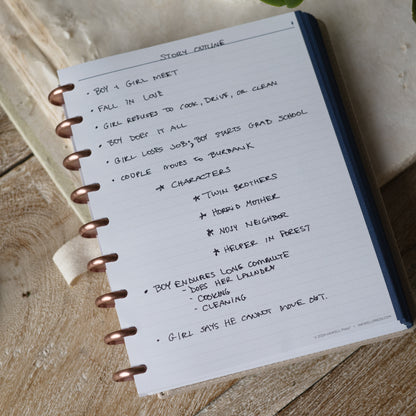 STORY OUTLINE
• BOY & GIRL MEET
• FALL IN LOVE
• GIRL REFUSES TO COOK, DRIVE, OR CLEAN
• BOY DOES IT ALL
• GIRL LOSES JOB; BOY STARTS GRAD SCHOOL
• COUPLE MOVES TO BURBANK
* CHARACTERS
* TWIN BROTHERS
* HORRID MOTHER
* NOSY NEIGHBOR
* HELPER IN FOREST
• BOY ENDURES LONG COMMUTE
- DOES HER LAUNDRY
- COOKING
- CLEANING
• GIRL SAYS HE CANNOT MOVE OUT.